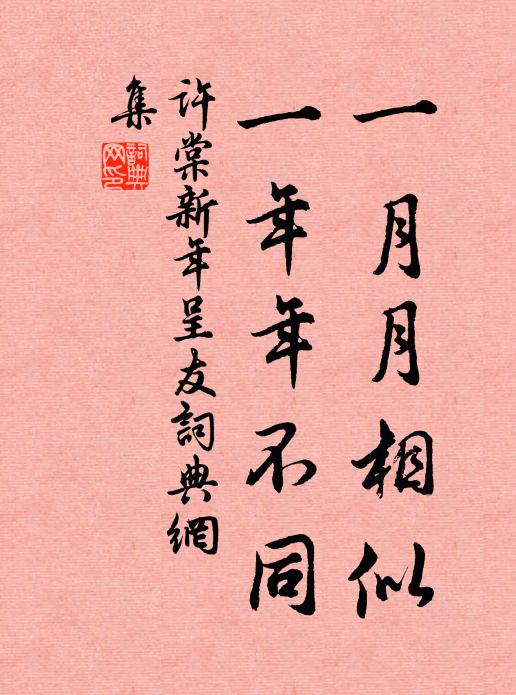 一月月相似
一年年不同
许棠新年呈友詞典網
集
詞典
网印